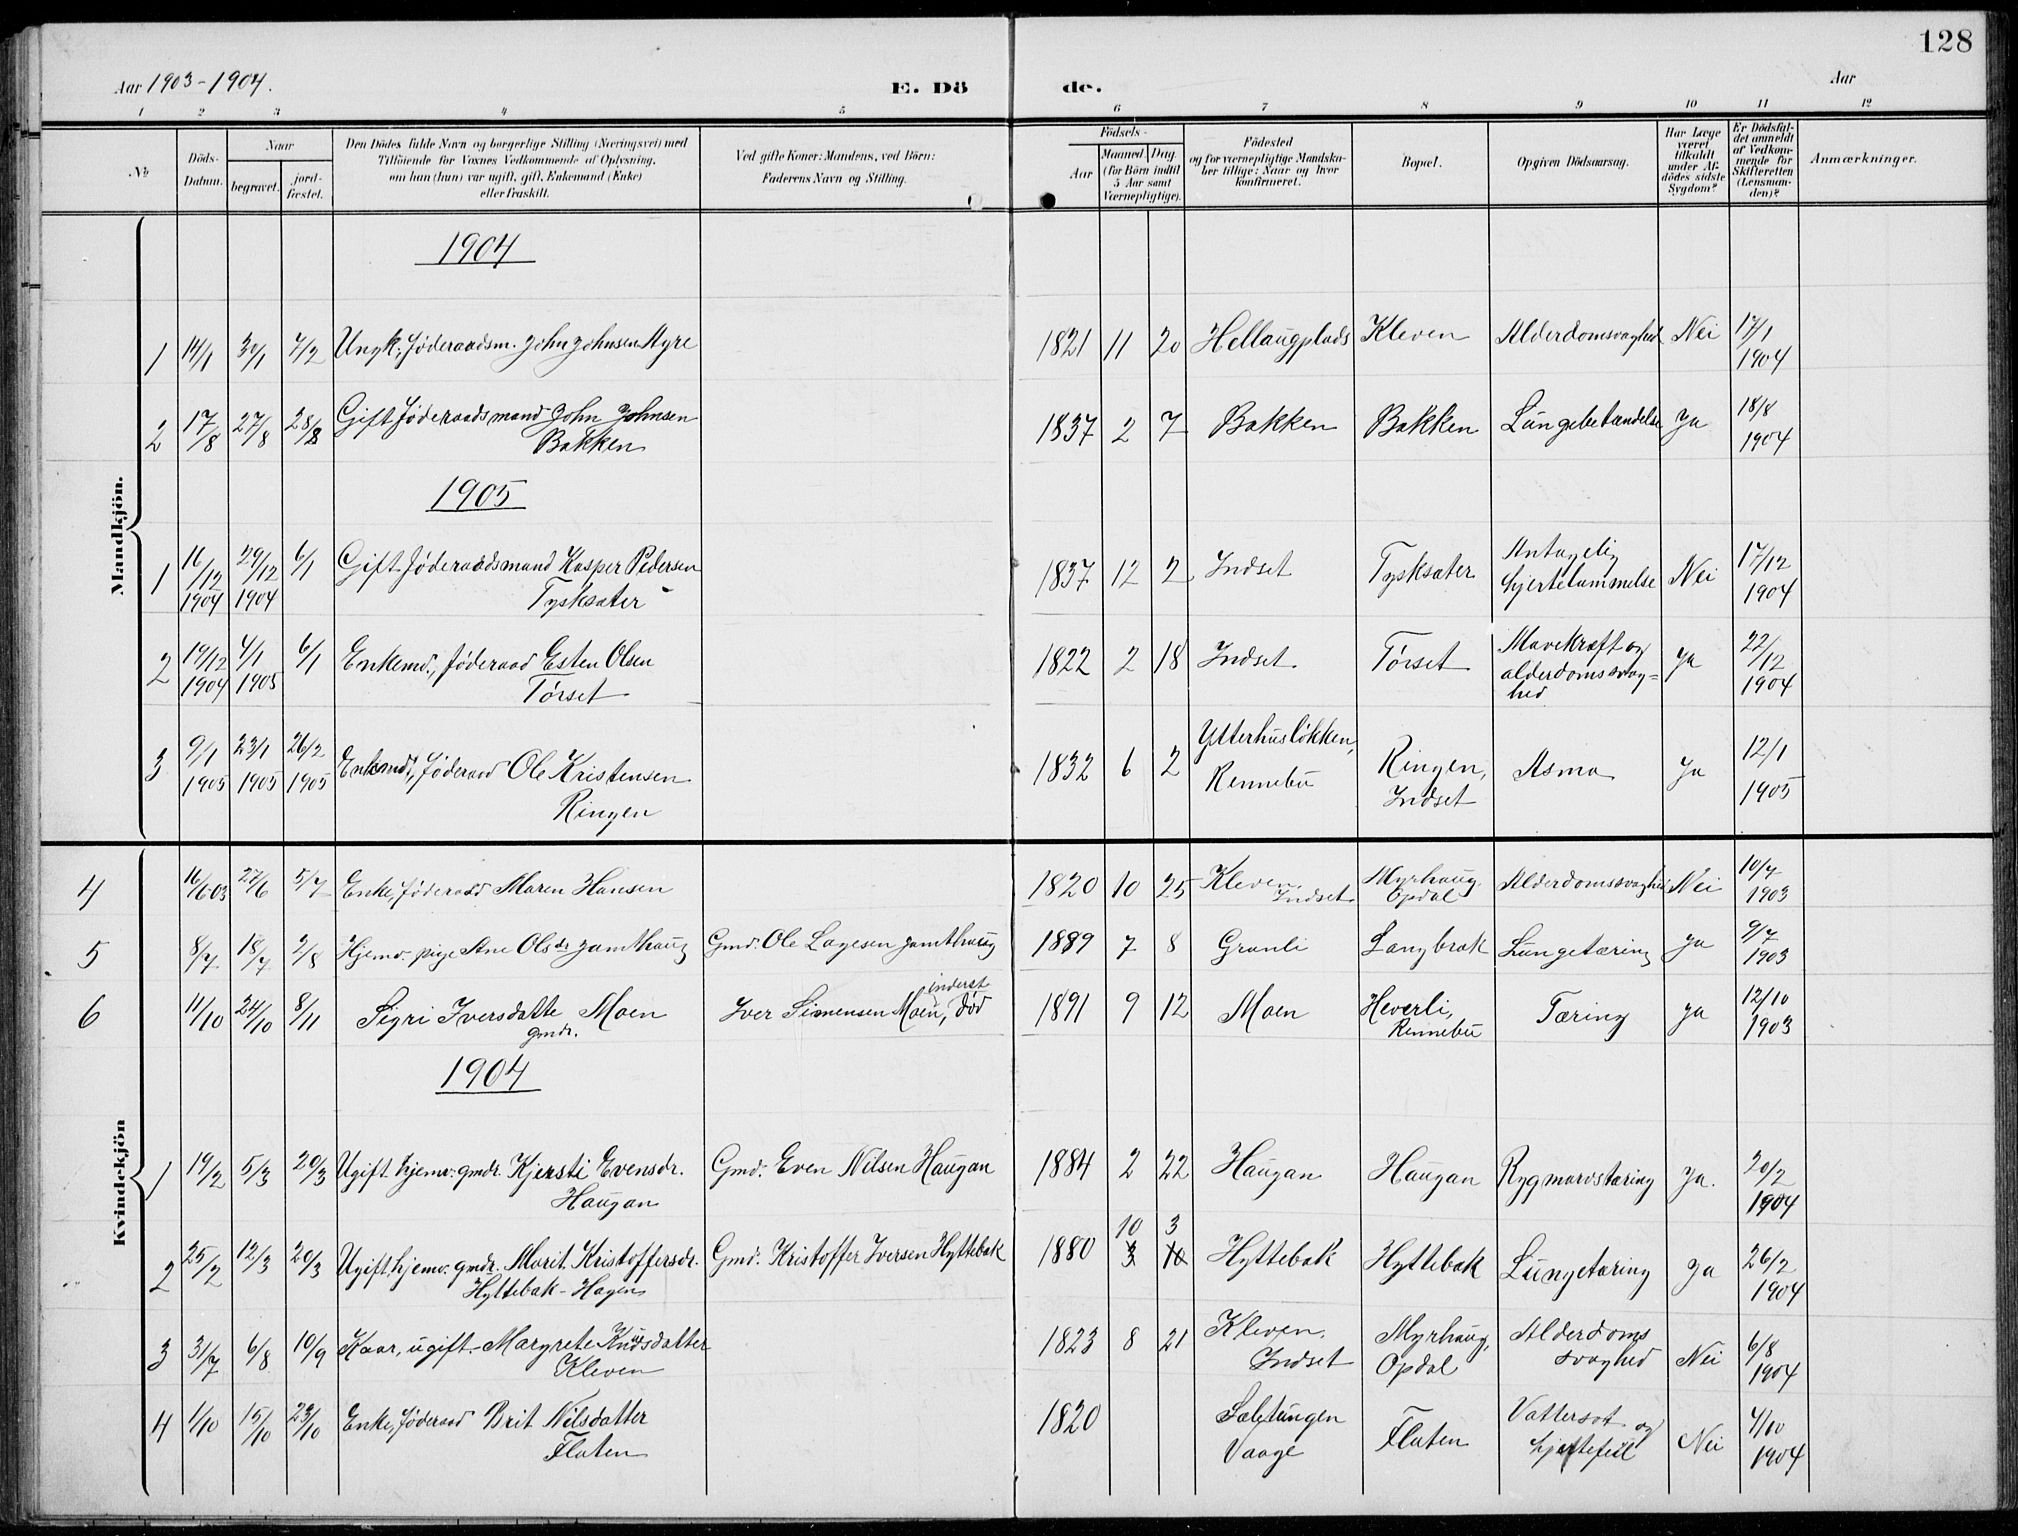 128
Aar 1903-1904.
E. Dö
de.
Aar
1 2 3 4 5 6 7 8 9 10 11 12
No
Döds-
Datum.
Naar
begravet.
jord-
fæstet.
Den Dödes fulde Navn og borgerlige Stilling (Næringsvei) med
Tilföiende for Voxnes Vedkommende af Oplysning,
om han (hun) var ugift, gift, Enkemand (Enke)
eller fraskilt.
Ved gifte Koner: Mandens, ved Börn:
Faderens Navn og Stilling.
Födsels-
Aar
Maaned Dag
(for Börn indtil
5 Aar samt
Værnepligtige).
Födested
og for værnepligtige Mandska-
ber tillige: Naar og hvor
konfirmeret.
Bopæl.
Opgiven Dödsaarsag.
Har Læge
været
tilkaldt
under Af-
dödes sidste
Sygdom?
Er Dödsfal-
det anmeldt
af Vedkom-
mende for
Skifteretten
(Lensman-
den)?
Anmærkninger.
Mandkjön.
1904
1 14/1 30/1 7/2 Ungk., föderaadsm. John Johnsen Myre 1821 11 20 Hellaugplads Kleven Alderdomsvaghed Nei 17/1
1904
2 17/8 27/8 28/8 Gift föderaadsmand John Johnsen 1837 2 7 Bakken Bakken Lungebetændelse Ja 18/8
Bakken 1904
1905
1 16/12 29/12 6/1 Gift föderaadsmand Kasper Pedersen 1837 12 2 Indset Tysksæter Antagelig Nei 17/12
1904 1904 Tysksæter hjertelammelse 1904
2 19/12 4/1 6/1 Enkemd., föderaad Esten Olsen 1822 2 18 Indset Törset Mavekræft og Ja 22/12
1904 1905 Törset alderdomssvag= 1904
hed
3 9/1 23/1 26/2 Enkemd., föderaad Ole Kristensen 1832 6 2 Ytterhuslökken, Ringen, Asma Ja 12/1
1905 1905 1905 Ringen Rennebu Indset 1905
Kvindekjön
4 16/6 03 27/6 5/7 Enke, föderaad Maren Hansen 1820 10 25 Kleven Myrhaug Alderdomssvaghed Nei 10/7
Indset Opdal 1903
5 8/7 18/7 2/8 Hjemv. pige Ane Olsdr Jamthaug Gmd. Ole Lagesen Jamthaug 1889 7 8 Granli Langbrok Lungetæring Ja 9/7
1903
6 11/10 24/10 8/11 Sigri Iversdatte Moen Iver Simensen Moen, inderst död 1891 9 12 Moen Heverli, Tæring Ja 12/10
gmdr. Rennebu 1903
1904
1 19/2 5/3 20/3 Ugift hjemv. gmdr. Kjersti Evensdr. Gmd. Even Nilsen Haugan 1884 2 22 Haugan Haugan Rygmarvstæring Ja. 20/2
Haugan 1904
10 3
2 25/2 12/3 20/3 Ugift, hjemv. gmdr. Marit Kristoffersdr. Gmd. Kristoffer Iversen Hyttebak 1880 3 10 Hyttebak Hyttebak Lungetæring Ja 26/2
Hyttebak-Hagen 1904
3 31/7 6/8 10/9 Kaar, ugift Margrete Knudsdatter 1823 8 21 Kleven, Myrhaug, Alderdoms Nei 6/8
Kleven Indset Opdal svaghed 1904
4 1/10 15/10 23/10 Enke, föderaad Brit Nilsdatter 1820 Flaten Vattersot og Nei 4/10
Flaten Vaage hjertefeil 1904